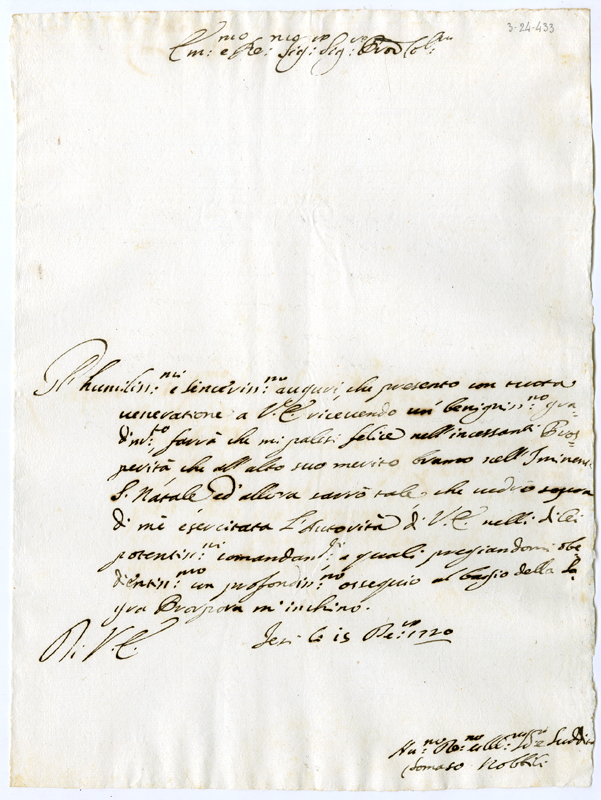 3-24-433
Em:mo e Re:mo Sig:r Sig:r Pron Col:mo
Gl'humiliss:mi e sinceriss:mi auguri, che presento con tutta
veneratione a V. E. ricevendo un' benigniss:mo gra-
dim:to farrà che mi palesi felice nell'incessanti Pros-
perità che all'alto suo merito bramo nell'Iminente
S. Natale ed' allora sarrò tale, che vedrò sopra
di mè esercitata L'Autorità di V. E. nelli di lei
potentiss:mi comandam:ti a quali pregiandomi obe-
dientiss:mo con profondiss:mo ossequio al bagio della Sa-
gra Porpora m'inchino.
Di V. E.
Jesi li 15 Xbre 1720
Hu:mo De:mo Obb:mo Suddito
Tomaso Nobbili